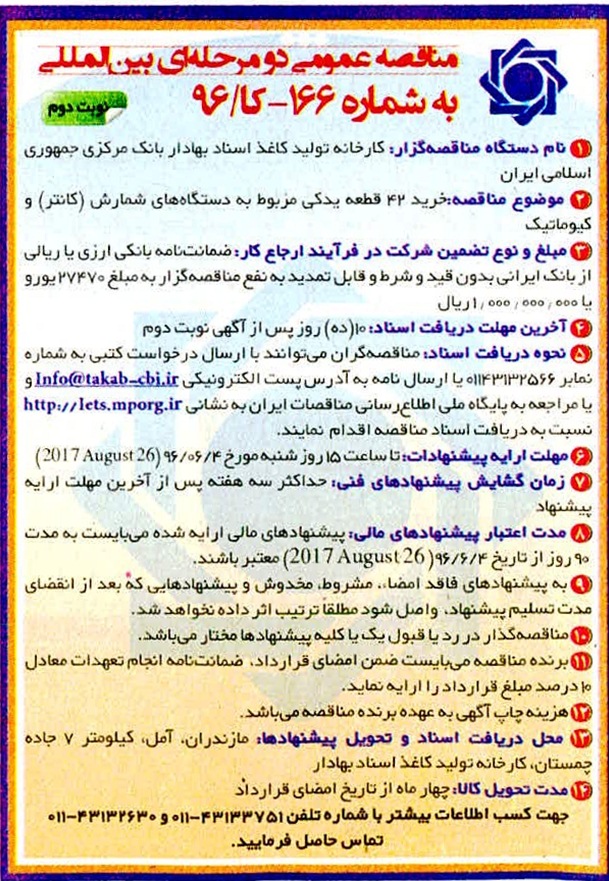 مناقصه عمومی دو مرحله‌ای بین‌المللی
به شماره ۱۶۶-کا/۹۶
نوبت دوم
۱ نام دستگاه مناقصه‌گزار: کارخانه تولید کاغذ اسناد بهادار بانک مرکزی جمهوری
اسلامی ایران
۲ موضوع مناقصه:خرید ۴۲ قطعه یدکی مربوط به دستگاه‌های شمارش (کانتر) و
کیوماتیک
۳ مبلغ و نوع تضمین شرکت در فرآیند ارجاع کار: ضمانت‌نامه بانکی ارزی یا ریالی
از بانک ایرانی بدون قید و شرط و قابل تمدید به نفع مناقصه‌گزار به مبلغ ۲۷۴۷۰ یورو
یا ۱٫۰۰۰٫۰۰۰٫۰۰۰ ریال
۴ آخرین مهلت دریافت اسناد: ۱۰(ده) روز پس از آگهی نوبت دوم
۵ نحوه دریافت اسناد: مناقصه‌گران می‌توانند با ارسال درخواست کتبی به شماره
نمابر ۰۱۱۴۳۱۳۲۵۶۶ یا ارسال نامه به آدرس پست الکترونیکی Info@takab-cbi.ir و
یا مراجعه به پایگاه ملی اطلاع‌رسانی مناقصات ایران به نشانی http://Iets.mporg.ir
نسبت به دریافت اسناد مناقصه اقدام نمایند.
۶ مهلت ارایه پیشنهادات: تا ساعت ۱۵ روز شنبه مورخ ۹۶/۰۶/۴ (2017 August 26)
۷ زمان گشایش پیشنهادهای فنی: حداکثر سه هفته پس از آخرین مهلت ارایه
پیشنهاد
۸ مدت اعتبار پیشنهادهای مالی: پیشنهادهای مالی ارایه شده می‌بایست به مدت
۹۰ روز از تاریخ ۹۶/۶/۴ (2017 August 26) معتبر باشند.
۹ به پیشنهادهای فاقد امضاء، مشروط، مخدوش و پیشنهادهایی که بعد از انقضای
مدت تسلیم پیشنهاد، واصل شود مطلقا ترتیب اثر داده نخواهد شد.
۱۰ مناقصه‌گذار در رد یا قبول یک یا کلیه پیشنهادها مختار می‌باشد.
۱۱ برنده مناقصه می‌بایست ضمن امضای قرارداد، ضمانت‌نامه انجام تعهدات معادل
۱۰ درصد مبلغ قرارداد را ارایه نماید.
۱۲ هزینه چاپ آگهی به عهده برنده مناقصه می‌باشد.
۱۳ محل دریافت اسناد و تحویل پیشنهادها: مازندران، آمل، کیلومتر ۷ جاده
چمستان، کارخانه تولید کاغذ اسناد بهادار
۱۴ مدت تحویل کالا: چهار ماه از تاریخ امضای قرارداد
جهت کسب اطلاعات بیشتر با شماره تلفن ۴۳۱۳۳۷۵۱-۰۱۱ و ۴۳۱۳۲۶۳۰-۰۱۱
تماس حاصل فرمایید.